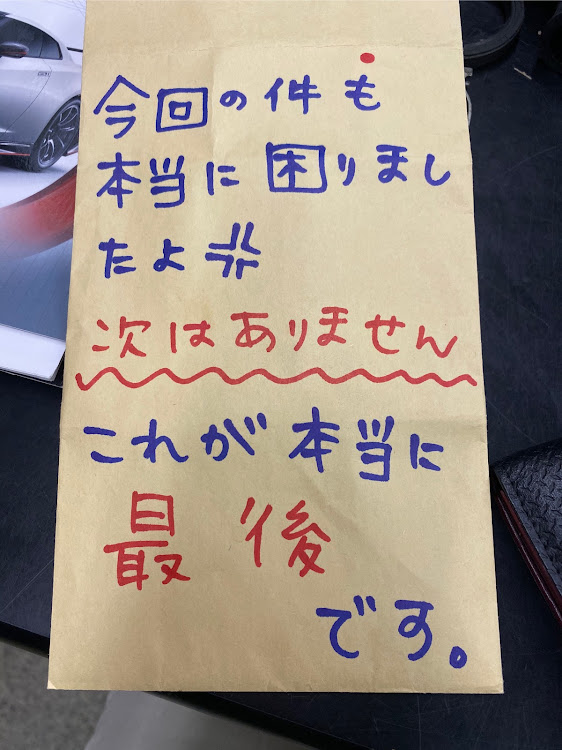 今回の件も
本当に困りまし
たよ💢
次はありません
これが本当に
最後
です。